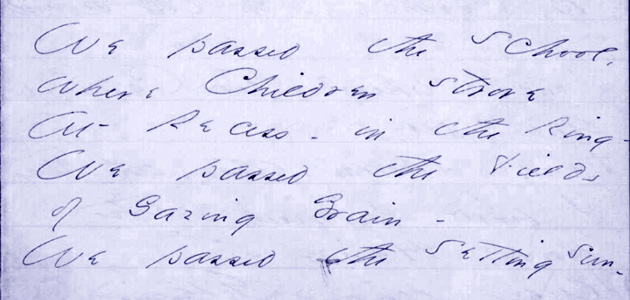 We passed the School,
where Children strove
At Recess - in the Ring -
We passed the Fields
of Gazing Grain -
We passed the Setting Sun -